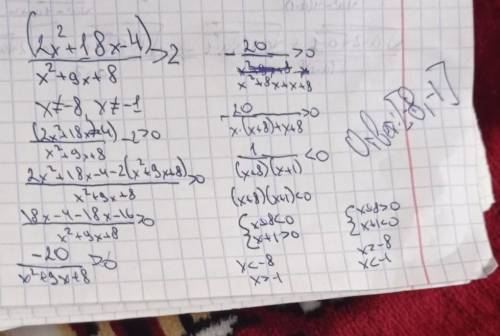 (2x²+18x-4)/(x²+9x+8) >2
x≠-8 x≠-1
(2x²+18x-4)/(x²+9x+8) -2>0
(2x²+18x-4-2(x²+9x+8))/(x²+9x+8) >0
(18x-4-18x-16)/(x²+9x+8) >0
(-20)/(x²+9x+8) >0
-20/(x²+8x+x+8) >0
-20/(x·(x+8)+x+8) >0
1/((x+8)(x+1)) <0
(x+8)(x+1)<0
{x+8<0
x+1>0
x<-8
x>-1
{x+8>0
x+1<0
x>-8
x<-1
Ответ:[-8;-1]